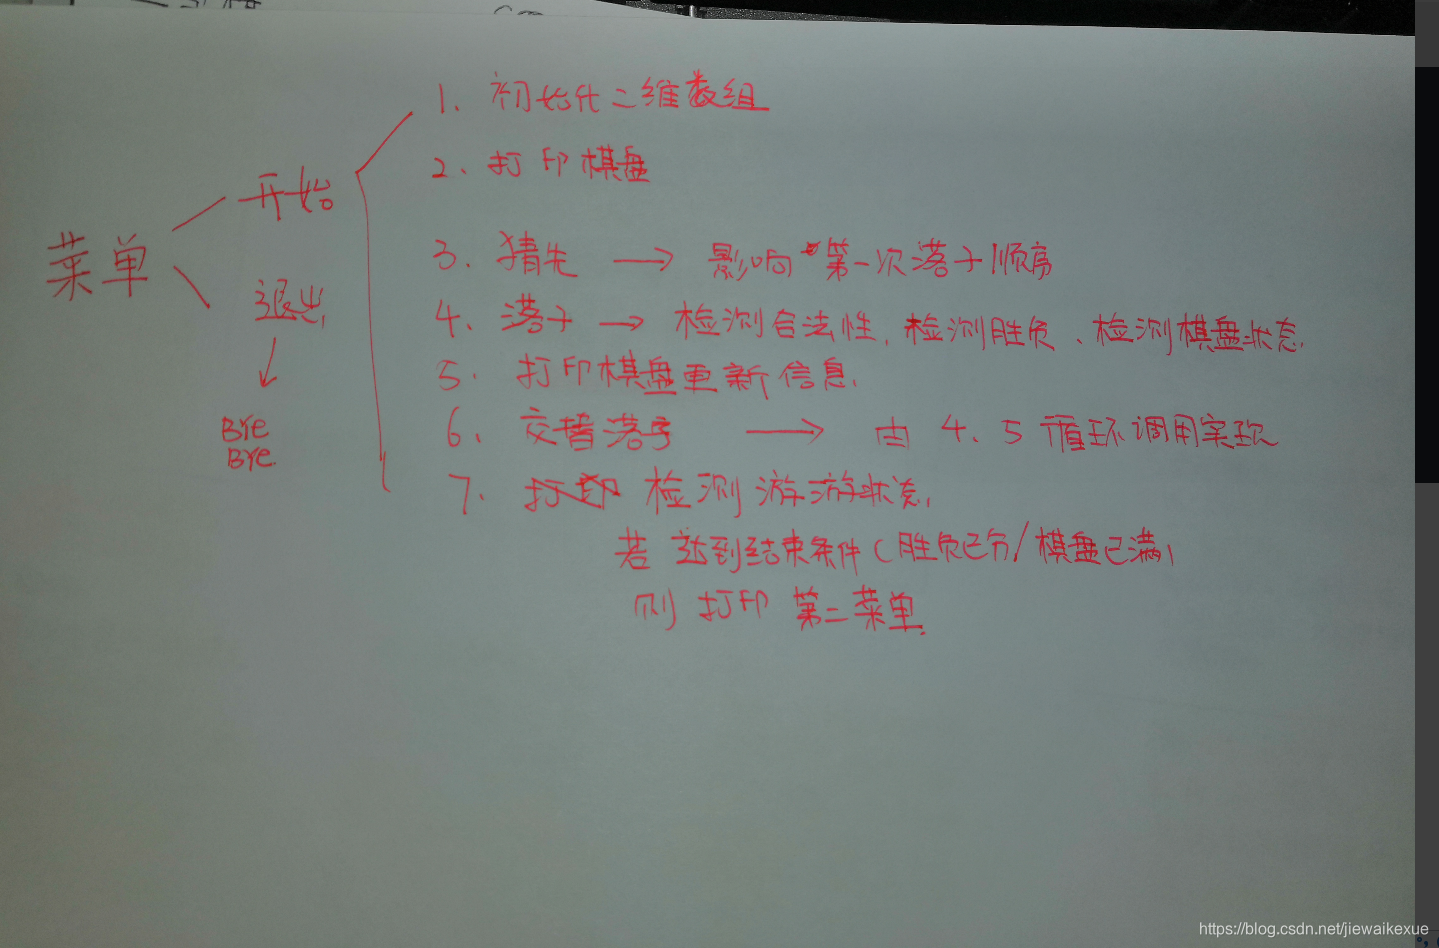 1. 初始化二维数组
2. 打印棋盘
开始
3. 猜先 → 影响 第一次落子顺序
菜单
退出
4. 落子 → 检测合法性, 检测胜负、检测棋盘状态.
5. 打印棋盘更新信息.
6. 交替落子 → 由 4、5 循环调用实现
BYe
BYe.
7. 打印 检测游游状态,
若 达到结束条件(胜负已分/棋盘已满)
则 打印 第二菜单.
https://blog.csdn.net/jiewaikexue